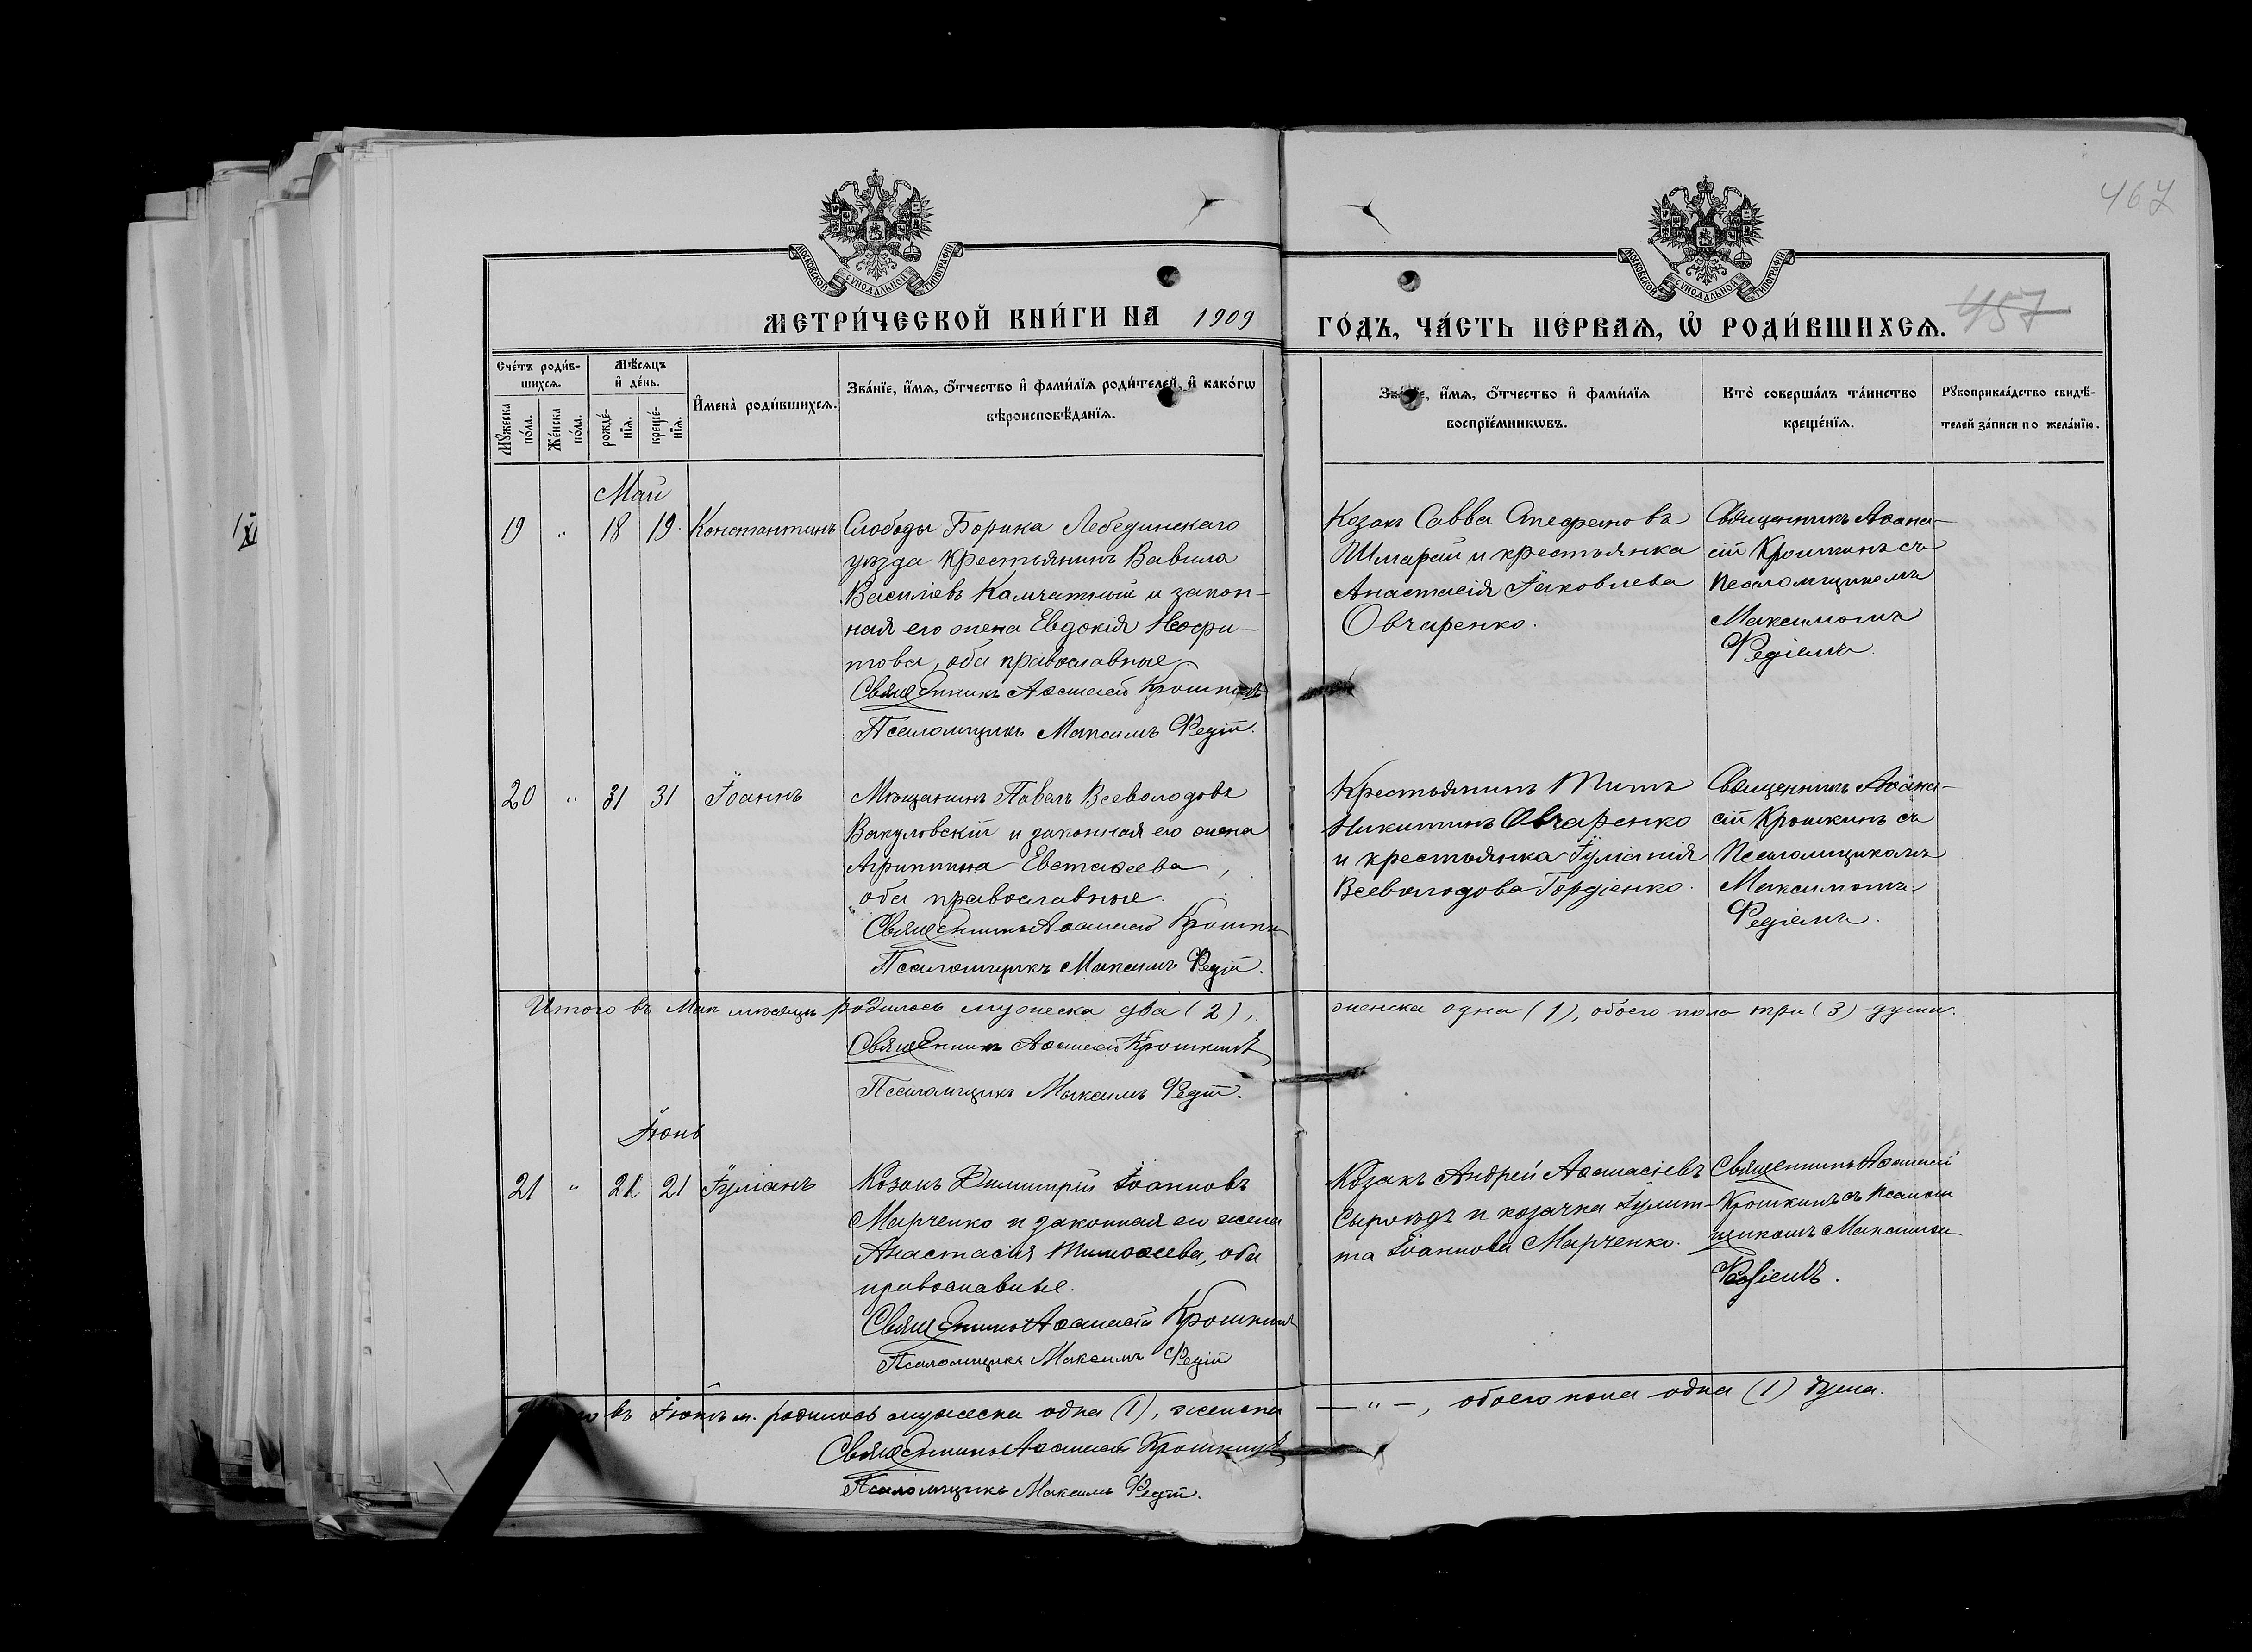 467
МОСКОВСКОЙ СѴНОДАЛЬНОЙ ТИПОГРАФІИ
МОСКОВСКОЙ СѴНОДАЛЬНОЙ ТИПОГРАФІИ
МЕТРИ́ЧЕСКОЙ КНИ́ГИ НА 1909
ГО́ДЪ, ЧА́СТЬ ПЕ́РВАѦ, Ѡ҆ РОДИ́ВШИХСѦ.
457
Сче́тъ роди́в-
шихсѧ.
Мѣ́сѧцъ
и҆ де́нь.
И҆мена̀ роди́вшихсѧ.
Зва́нїе, и҆́мѧ, ѻ҆́тчество и҆ фами́лїѧ роди́телей, и҆ како́гѡ
вѣроисповѣ́данїѧ.
Мꙋ́жеска
по́ла.
Же́нска
по́ла.
рожде́-
нїѧ.
креще́-
нїѧ.
Зва́нїе, и҆́мѧ, ѻ҆́тчество и҆ фами́лїѧ
воспрїе́мникѡвъ.
Кто̀ соверша́лъ та́инство
креще́нїѧ.
Рꙋкоприкла́дство свидѣ́-
телей за́писи по жела́нїю.
Май
19 " 18 19 Константинъ
Слободы Борика Лебединскаго
уѣзда крестьянинъ Вавила
Васильевъ Камчатный и закон-
ная его жена Евдокія Неофи-
това, оба православные
Священникъ Аѳанасій Крошкинъ
Псаломщикъ Максимъ Редій.
Козакъ Савва Стефановъ
Шмарай и крестьянка
Анастасія Іаковлева
Овчаренко.
Священникъ Аѳана-
сій Крошкинъ съ
псаломщикомъ
Максимомъ
Редіемъ.
20 " 31 31 Іоаннъ
Мѣщанинъ Павелъ Всеволодовъ
Вакуловскій и законная его жена
Агриппина Евстаѳеева,
оба православные.
Священникъ Аѳанасій Крошки
Псаломщикъ Максимъ Редій.
Крестьянинъ Титъ
Никитинъ Овчаренко
и крестьянка Іуліанія
Всеволодова Гордіенко.
Священникъ Аѳана-
сій Крошкинъ съ
Псаломщикомъ
Максимомъ
Редіемъ.
Итого въ Маѣ мѣсяцѣ родилось мужеска два (2), женска одна (1), обоего пола три (3) души.
Священникъ Аѳанасій Крошкинъ
Псаломщикъ Максимъ Редій.
Іюнь
21 " 21 21 Іуліанъ
Козакъ Димитрій Іоанновъ
Марченко и законная его жена
Анастасія Тимоѳеева, оба
православные.
Священникъ Аѳанасій Крошкинъ
Псаломщикъ Максимъ Редій
Козакъ Андрей Аѳанасіевъ
Сыроѣдъ и козачка Іулит-
та Іоаннова Марченко.
Священникъ Аѳанасій
Крошкинъ съ псалом
щикомъ Максимом
Редіемъ.
въ Іюнѣ м. родилось мужеска одна (1), женска — " —, обоего пола одна (1) душа.
Священникъ Аѳанасій Крошкинъ
Псаломщикъ Максимъ Редій.